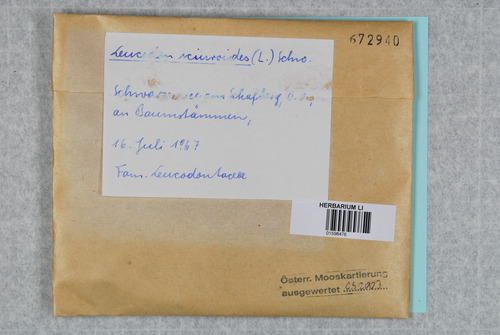 672940
Leucodon sciuroides (L.) Schw.
Schwarzensee am Schafberg,
an Baumstämmen,
16. Juli 1967
Fam. Leucodontaceae
HERBARIUM LI
Österr. Mooskartierung
ausgewertet